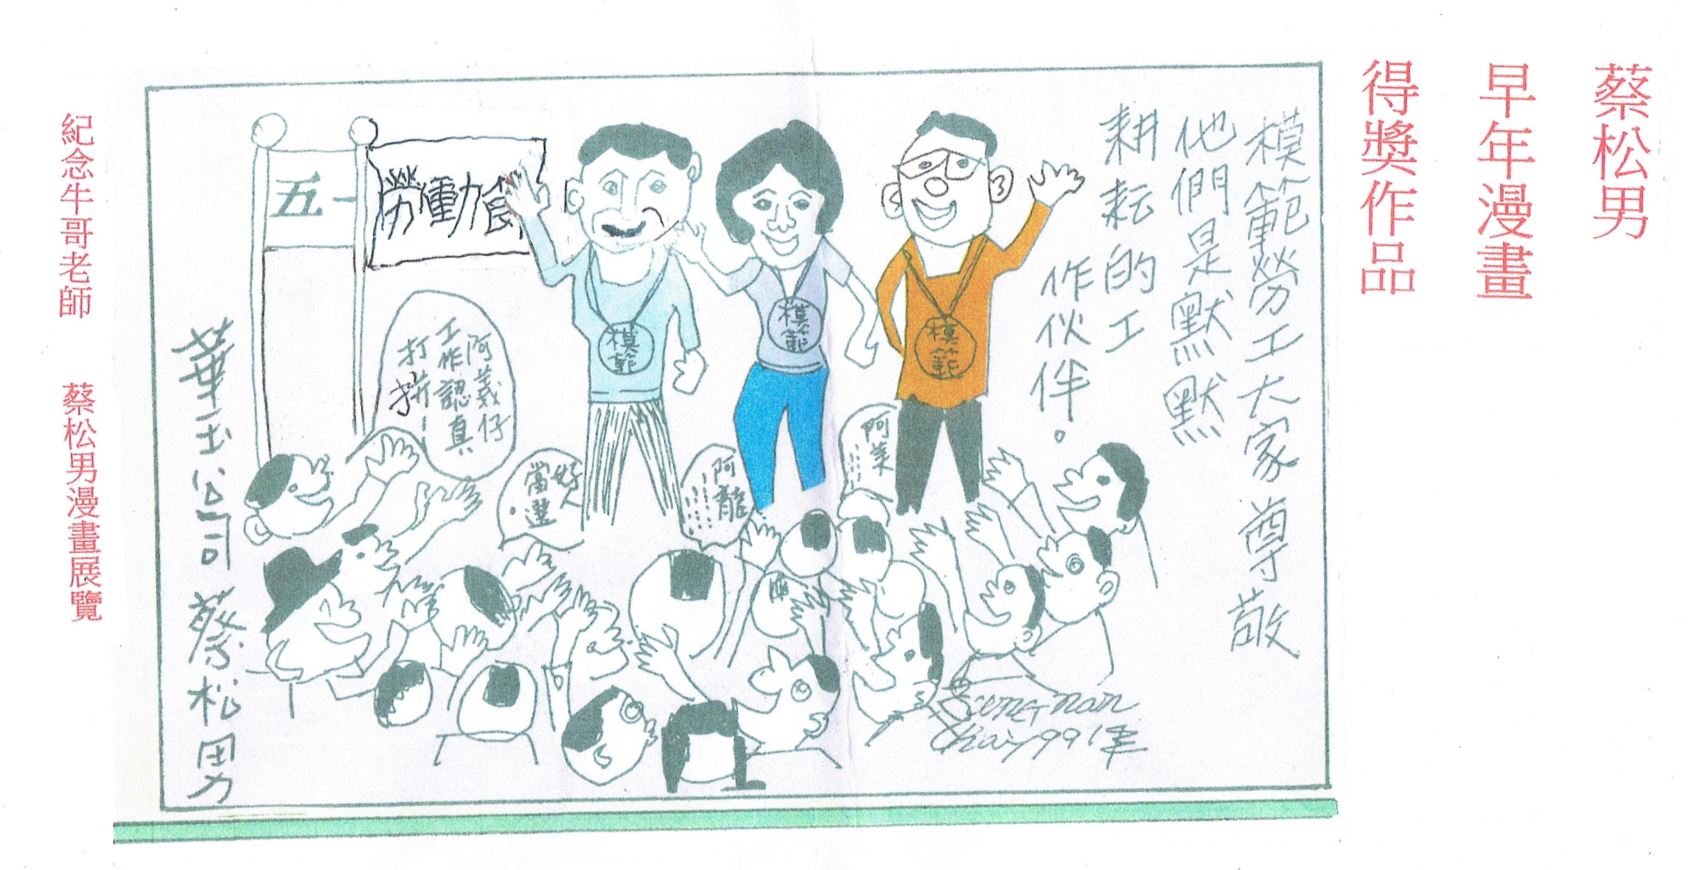 蔡松男
早年漫畫
得獎作品
模範勞工大家尊敬
他們是默默
耕耘的工
作伙伴。
五一
勞動節
阿義仔
工作認真
打拼！
好人
當選
阿龍
阿美
模範
模範
模範
華玉公司 蔡松男
紀念牛哥老師 蔡松男漫畫展覽